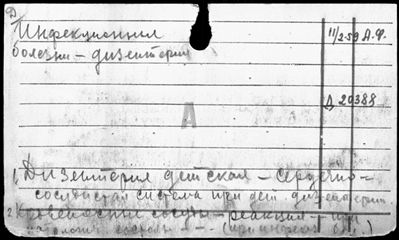 Д
Инфекционния 11/2-59 А.Ф.
болезни – дизентерия
Д 20388
А
1, Дизентерия детская – сердечно-
сосудистая система при дет. дизентерии.
2 Кровеносные сосуды – реакция – при